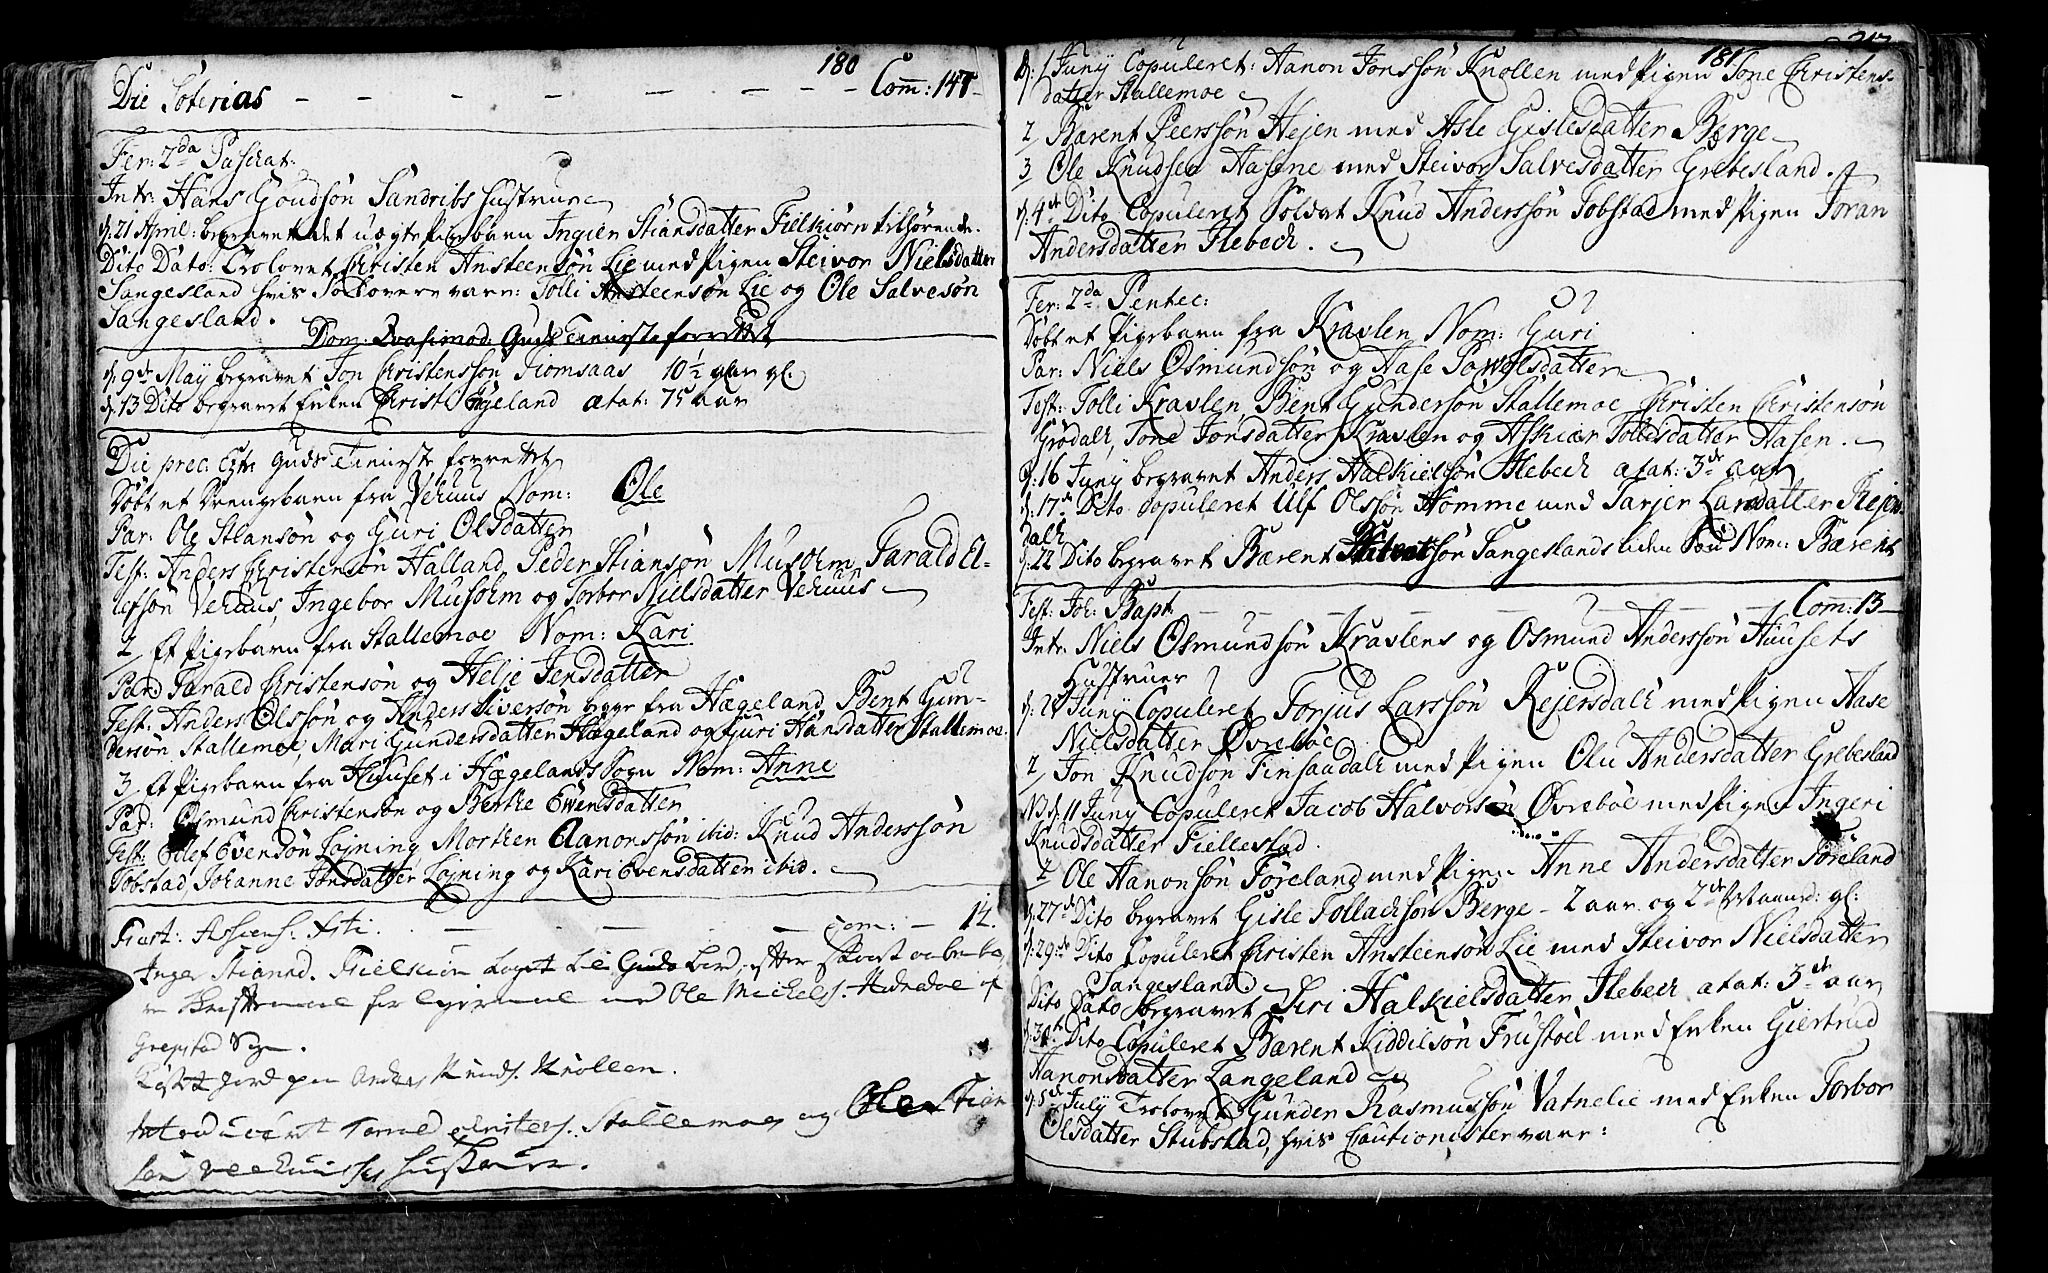 180
Die Soterias — — — — — — — — Com: 147
Fer: 2da Paschat:
Intr: Hans Goudsøn Sandribs Hustrue
d: 21 April: begravet det uægte Pigebarn Ingier Stiansdatter Fielkiørn tilhørende.
Dito Dato: Trolovet Christen Ansteensøn Lie med Pigen Steivor Nielsdatter
Sangesland hvis Forlovere vare: Tolli Ansteensøn Lie og Ole Salvesøn
Sangesland.
Dom: Qvasimod: Guds Tieniste forrettet
d: 9de May begravet Jon Christenssøn Tiomsaas 10½ aar gl.
d: 13 Dito begravet Enken Christ: Hægeland ætat: 75 aar
Die prec: Extr: Guds Tieniste forrettet
Døbt et Drengebarn fra Vehuus Nom: Ole
Par: Ole Stiansøn og Guri Olsdatter
Test: Anders Christensøn Halland, Peder Stiansøn Musolm, Tarald El-
lefsøn Vehuus, Ingebor Musolm og Torbor Nielsdatter Vehuus
2 Et Pigebarn fra Stallemoe Nom: Kari
Par: Tarald Christensøn og Helje Jensdatter
Test: Anders Olssøn og Anders Siversøn begge fra Hægeland, Bent Gun-
dersøn Stallemoe, Mari Gundersdatter Hægeland og Guri Hansdatter Stallemoe.
3 Et Pigebarn fra Huuset i Hægelands Sogn Nom: Anne
Par: Osmund Christensøn og Berthe Evensdatter
Test: Ellef Evensøn Løjning Morthen Aanonssøn ibid: Knud Anderssøn
Tobstad, Johanne Jonsdatter Løjning og Kari Evensdatter ibid.
Fest: Ascens: Xsti. — — — Com: — 14.
Inger Stiansd. Fielkiør
Ole Michels. af
Grepstad Sogn.
Kast Jord paa Anders Knuds. Knollen.
Introduceret Tarald Christens. Stallemoes og Ole Stian
søn Veehuuses Hustruer.
181
d: 1 Juny Copuleret: Aanon Jonssøn Knollen med Pigen Tone Christens-
datter Stallemoe
2 Bærent Peerssøn Hejen med Asle Gislesdatter Berge
3 Ole Knudsen Aasene med Steivor Salvesdatter Grebesland.
d: 4de Dito Copuleret Soldat Knud Anderssøn Tobstad med Pigen Joran
Andersdatter Ilebech.
Fer: 2da Pentec:
Døbt et Pigebarn fra Kravlen Nom: Guri
Par: Niels Osmundsøn og Aase Powelsdatter
Test: Tolli Kravlen, Bent Gundersøn Stallemoe Christen Christensøn
Grødalh, Tone Jonsdatter Kravlen og Askier Tollesdatter Aasen.
d: 16 Juny begravet Anders Halkielsøn Ilebech ætat: 3de aar
d: 17de Dito Copuleret Ulf Olssøn Homme med Tarjer Larsdatter Rejers
dalh
d: 22 Dito begravet Bærent søn Sangeslands liden Søn Nom: Bærent
Fest: Joh: Bapt: — — — — Com: 13
Intr: Niels Osmundsøn Kravlens og Osmund Anderssøn Huusets
Hustruer
d: Juny Copuleret Torjus Larssøn Rejersdalh med Pigen Aase
Nielsdatter Øvrebøe
2 Jon Knudsøn Finsaadalh med Pigen Olu Andersdatter Grebesland
NB d: 11 Juny Copuleret Jacob Halvorsøn Øvrebøe med Pigen Ingeri
Knudsdatter Fiellestad.
2 Ole Aanonsøn Føreland med Pigen Anne Andersdatter Føreland
d: 27de Dito begravet Gisle Tollachsøn Berge — 2 aar og gl:
d: 29de Dito Copuleret Christen Ansteensøn Lie med Steivor Nielsdatter
Sangesland
Dito Dato begravet Siri Halkielsdatter Ilebech ætat: 3de aar
d: 30te Dito Copuleret Bærent Kiddilsøn Frustøel med Enken Giertrud
Aanonsdatter Langeland
d: 5de July Trolovet Gunder Rasmussøn Vatnelie med Enken Torbor
Olsdatter Stubstad, hvis Cautionister vare: